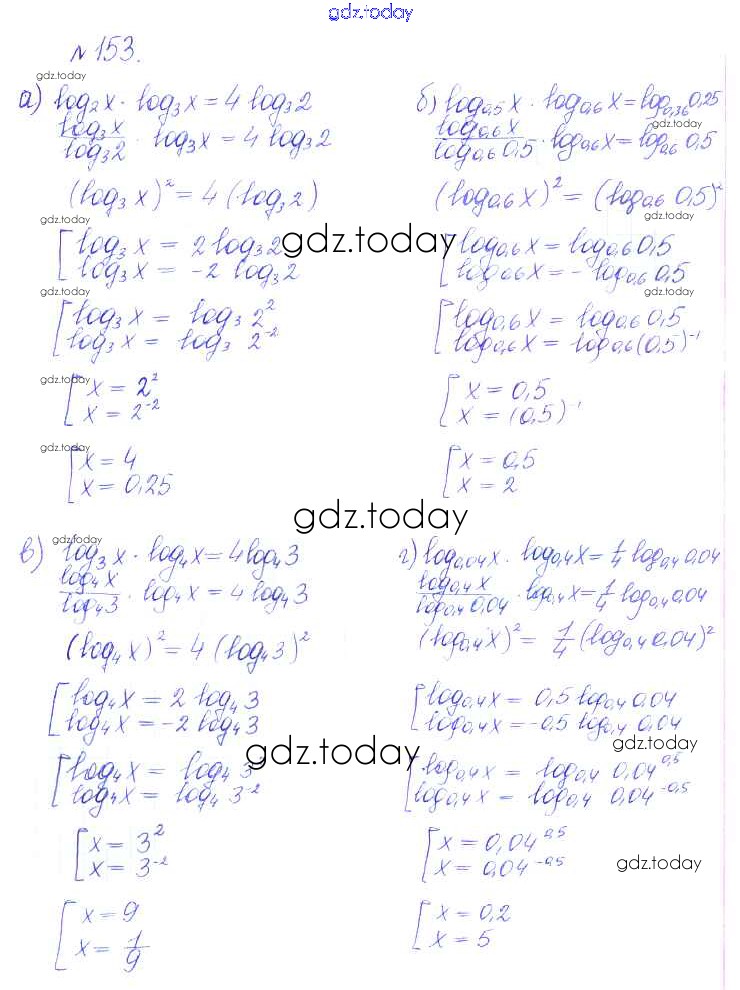 gdz.today
№153.
gdz.today
а) log₂x · log₃x = 4 log₃2
log₃x/log₃2 · log₃x = 4 log₃2
(log₃x)² = 4 (log₃2)
gdz.today
[log₃x = 2 log₃2
log₃x = -2 log₃2
gdz.today
[log₃x = log₃ 2²
log₃x = log₃ 2⁻²
gdz.today
[x = 2²
x = 2⁻²
gdz.today
[x = 4
x = 0,25
б) log₀,₅x · log₀,₆x = log₀,₃₆0,25
gdz.today
log₀,₆x/log₀,₆0,5 · log₀,₆x = log₀,₆0,5
(log₀,₆x)² = (log₀,₆0,5)²
gdz.today
gdz.today
[log₀,₆x = log₀,₆0,5
log₀,₆x = -log₀,₆0,5
gdz.today
[log₀,₆x = log₀,₆0,5
log₀,₆x = log₀,₆(0,5)⁻¹
[x = 0,5
x = (0,5)⁻¹
[x = 0,5
x = 2
gdz.today
gdz.today
в) log₃x · log₄x = 4 log₄3
log₄x/log₄3 · log₄x = 4 log₄3
(log₄x)² = 4 (log₄3)²
[log₄x = 2 log₄3
log₄x = -2 log₄3
gdz.today
[log₄x = log₄ 3²
log₄x = log₄ 3⁻²
[x = 3²
x = 3⁻²
[x = 9
x = 1/9
г) log₀,₀₄x · log₀,₄x = 1/4 log₀,₄0,04
log₀,₄x/log₀,₄0,04 · log₀,₄x = 1/4 log₀,₄0,04
(log₀,₄x)² = 1/4 (log₀,₄0,04)²
[log₀,₄x = 0,5 log₀,₄0,04
log₀,₄x = -0,5 log₀,₄0,04
gdz.today
[log₀,₄x = log₀,₄ 0,04^0,5
log₀,₄x = log₀,₄ 0,04^-0,5
[x = 0,04^0,5
x = 0,04^-0,5
gdz.today
[x = 0,2
x = 5